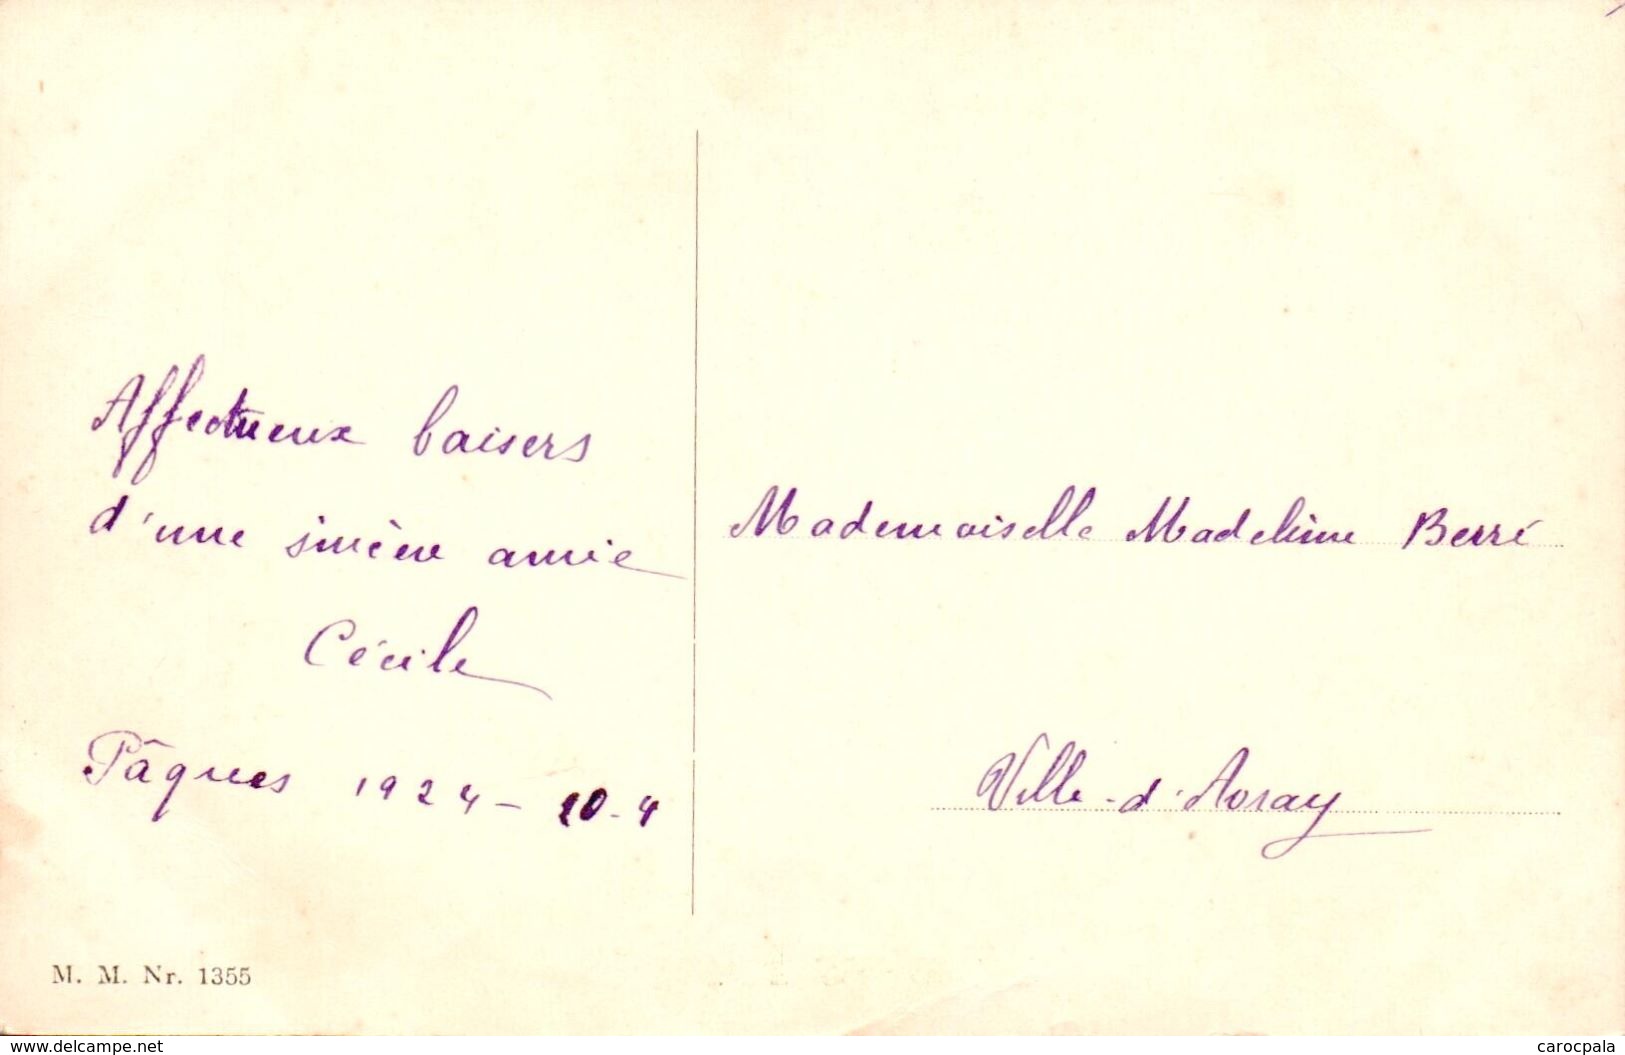 Affectueux baisers
d'une sincère amie
Cécile
Pâques 1924 - 20-4
M. M. Nr. 1355
Mademoiselle Madeleine Berré
Ville-d'Avray
www.delcampe.net
carocpala